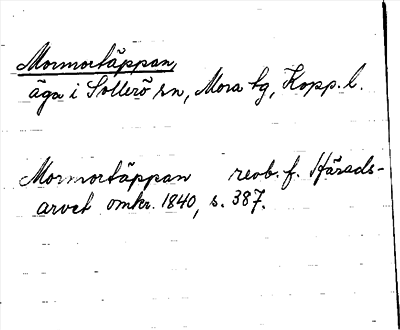 Mormortäppan,
äga i Sollerö sn, Mora tg, Kopp. l.
Mormortäppan reob. f. Härads-
arvet omkr. 1840, s. 387.